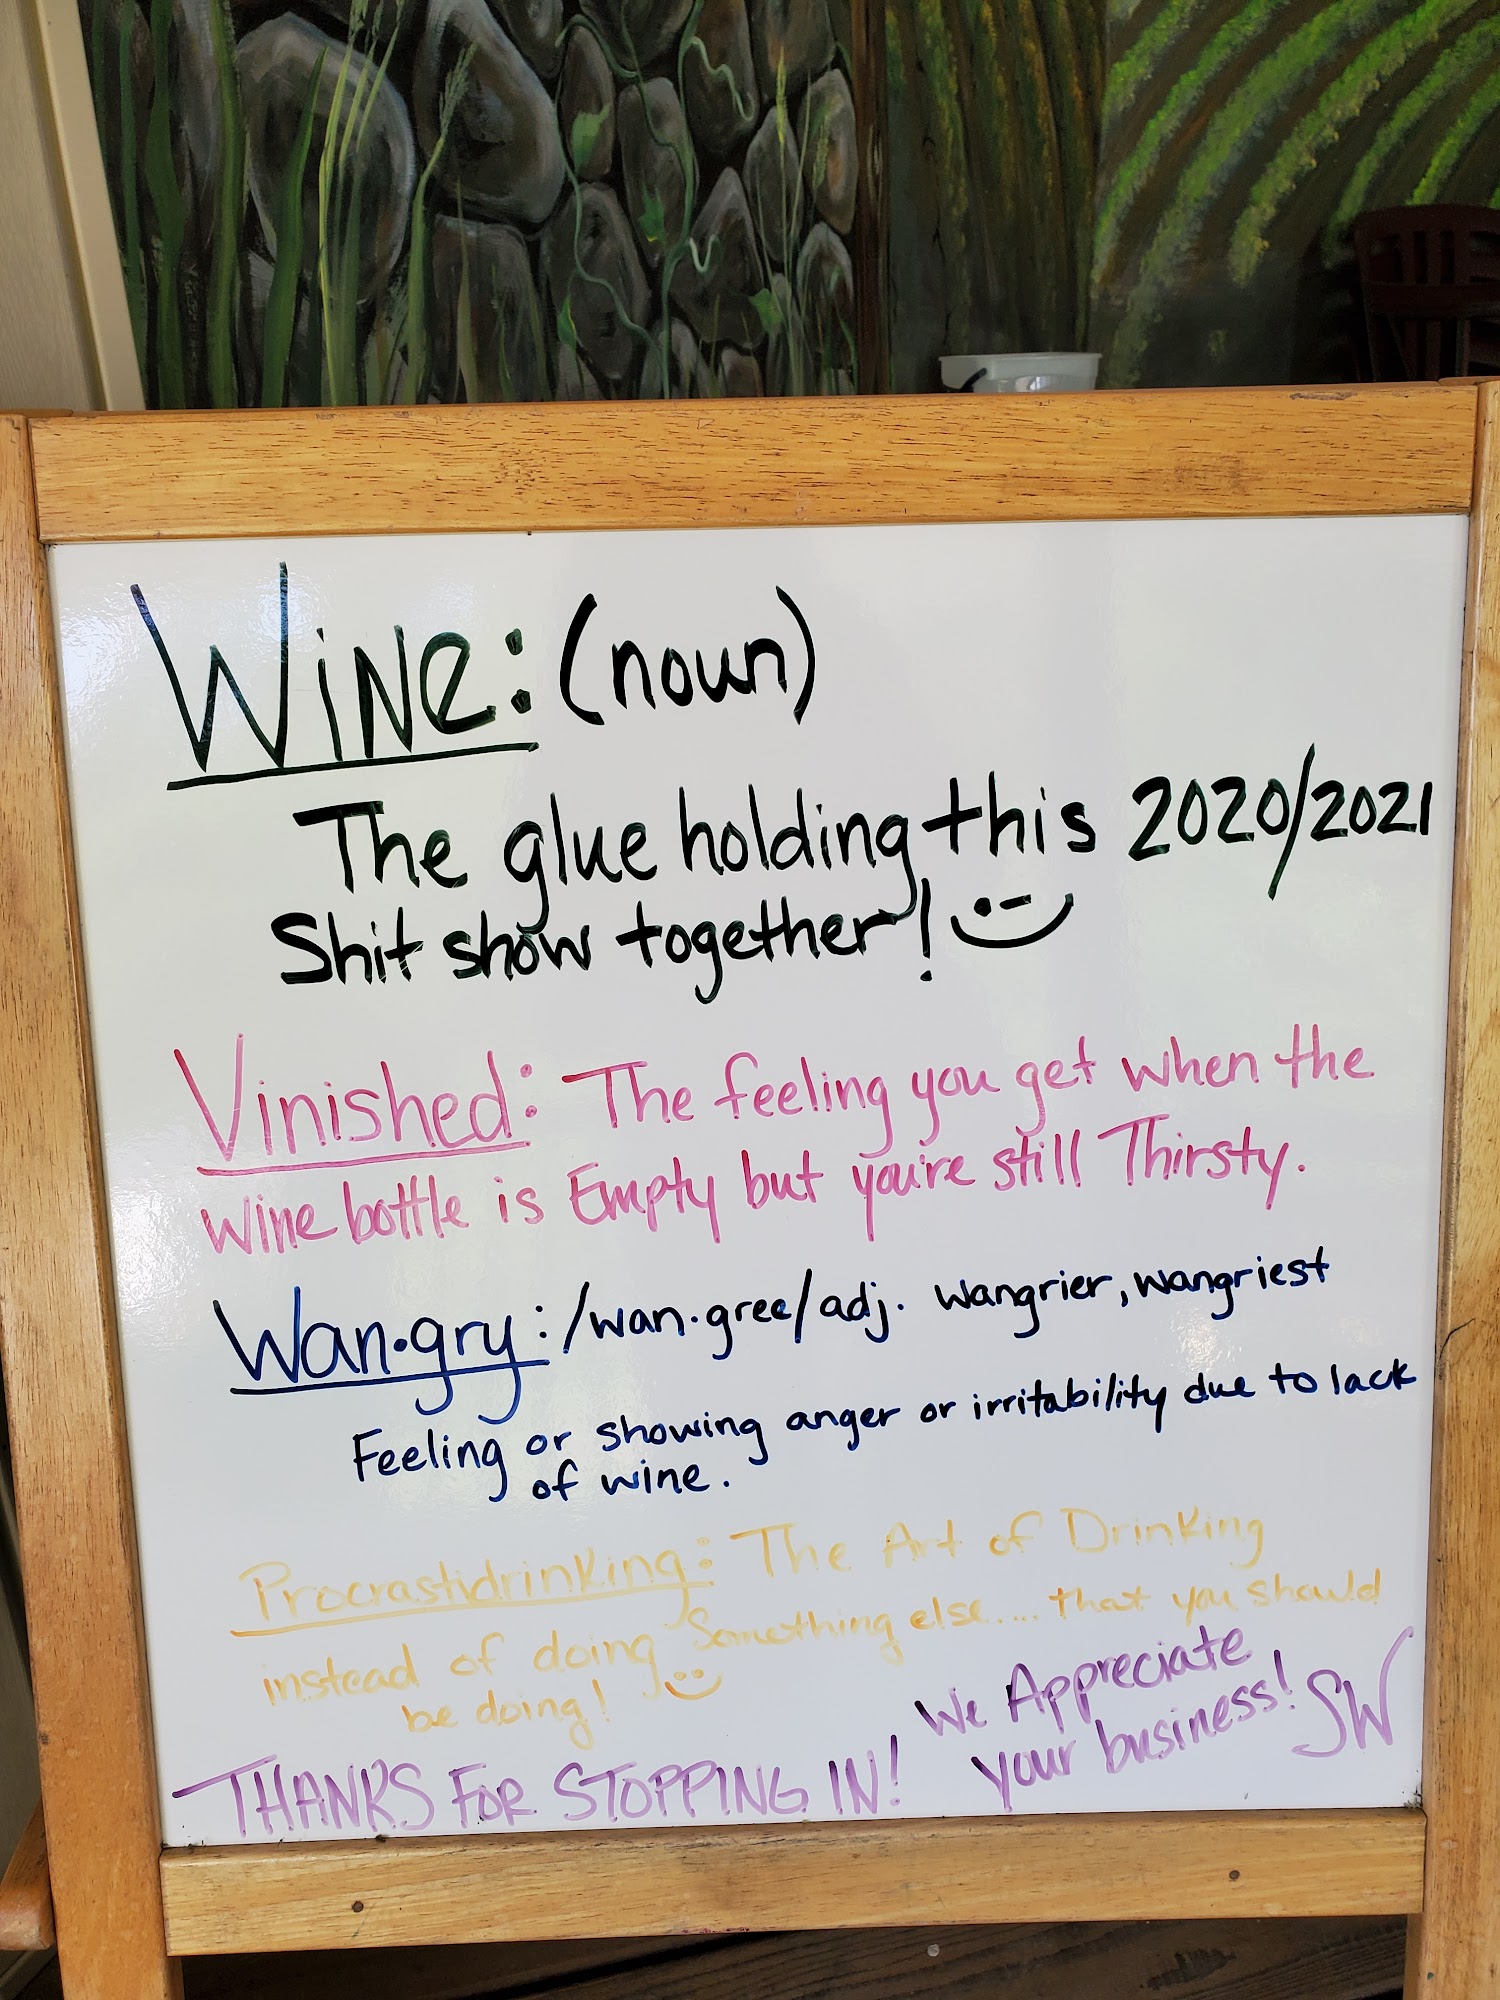 Wine: (noun)
The glue holding this 2020/2021
Shit show together!
Vinished: The feeling you get when the
wine bottle is Empty but you're still Thirsty.
Wan•gry: /wan·gree/adj. wangrier, wangriest
Feeling or showing anger or irritability due to lack
of wine.
Procrastidrinking: The Art of Drinking
instead of doing Something else.... that you should
be doing!
We Appreciate
your business! SW
THANKS FOR STOPPING IN!